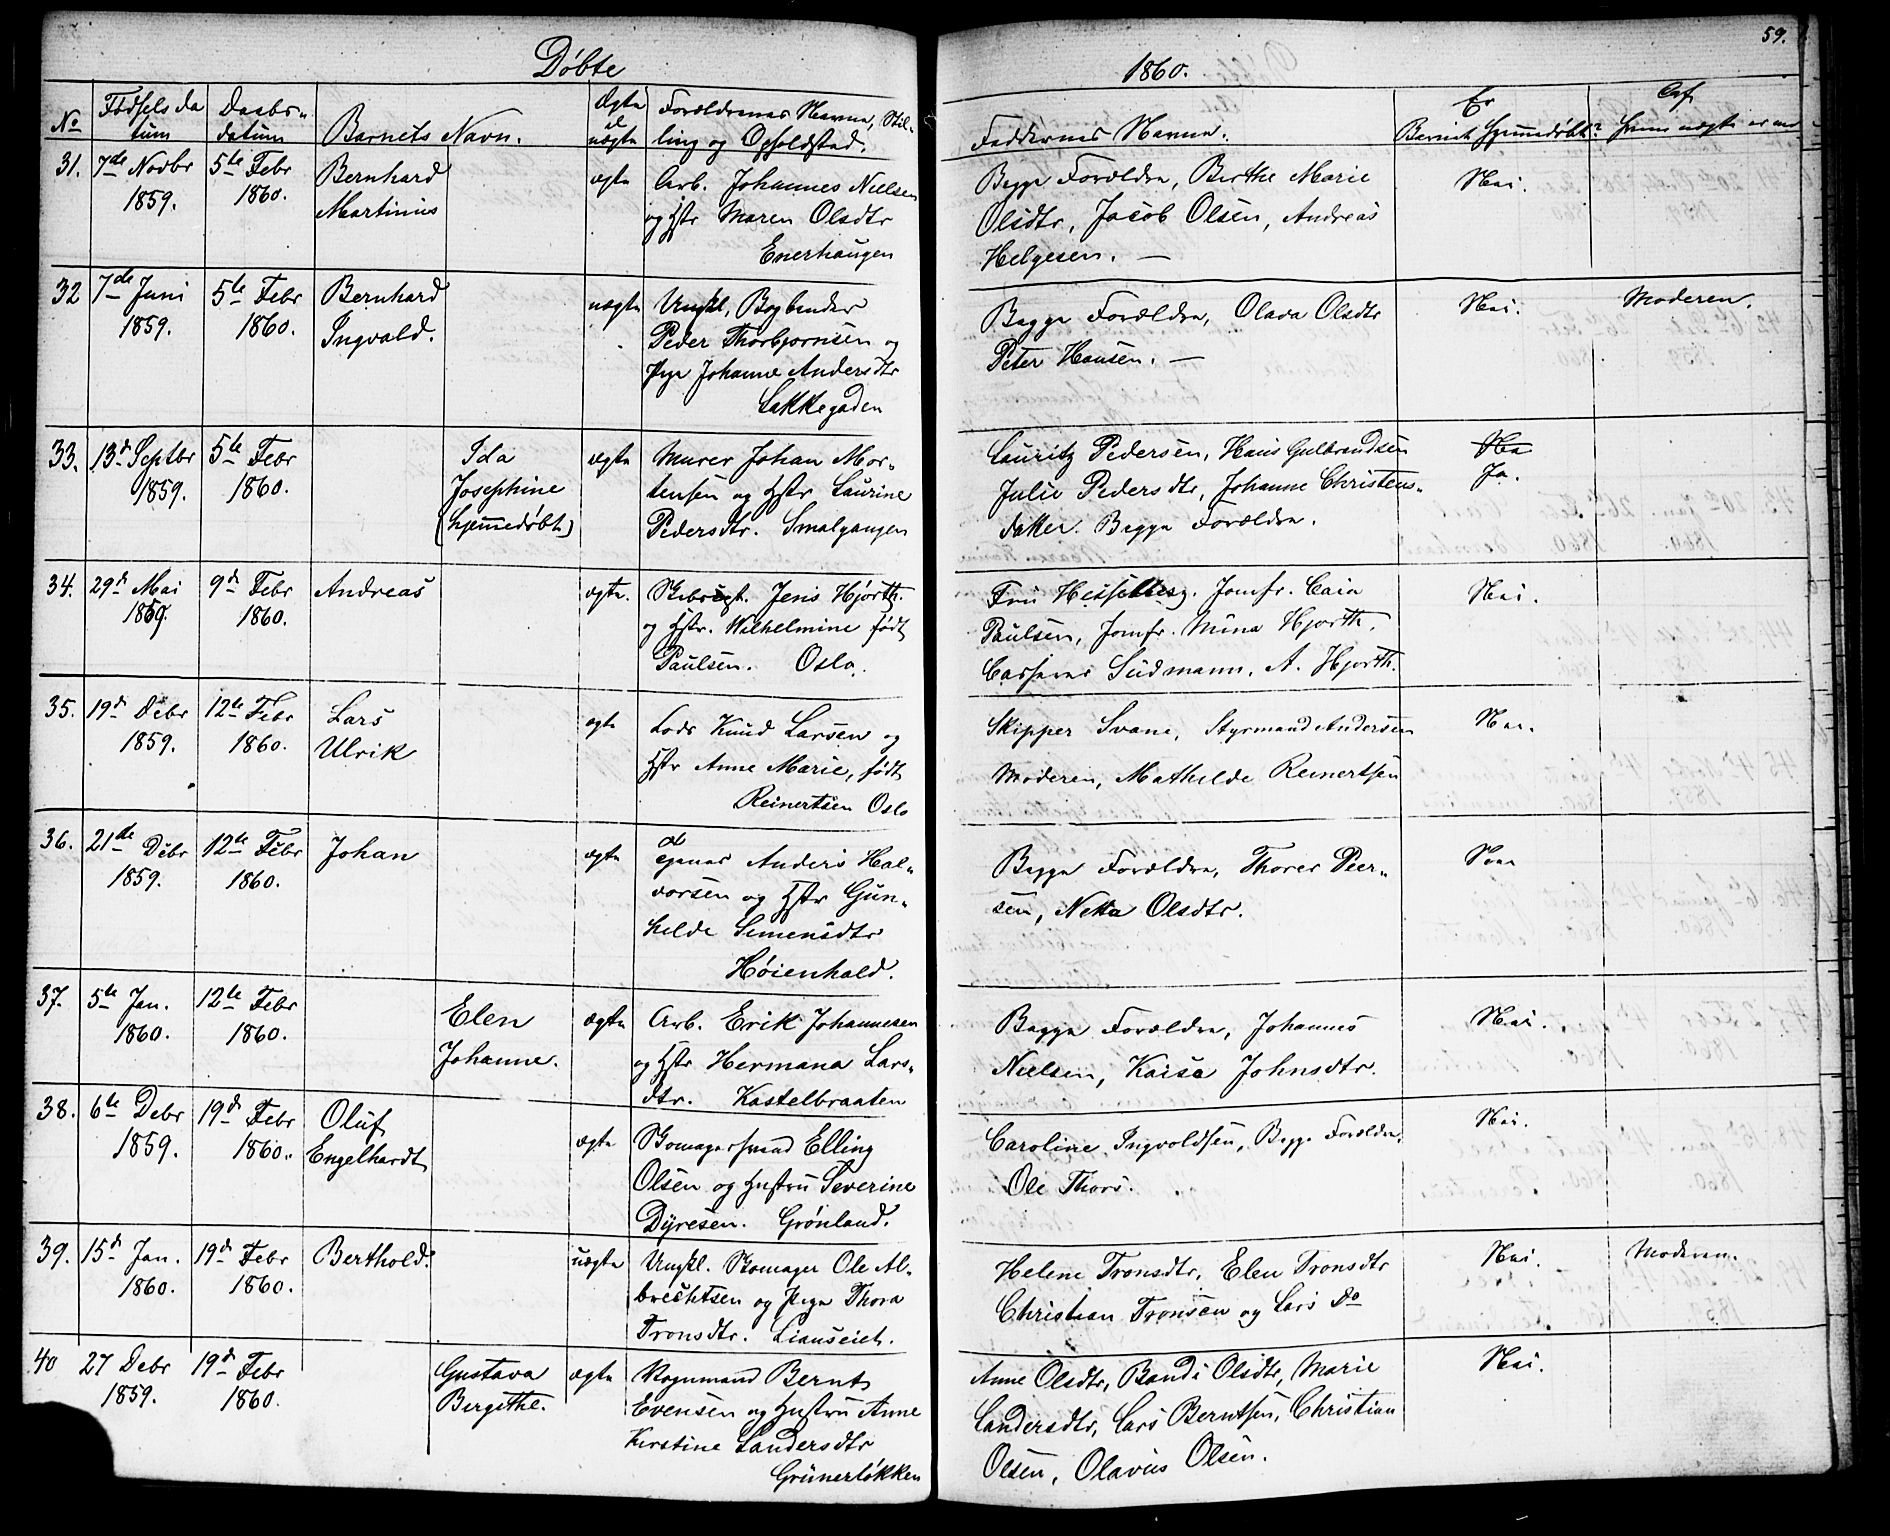 59.
Døbte
1860.
No
Fødsels da
tum
Daabs-
datum
Barnets Navn.
Ægte
el
uægte
Forældrenes Navne, Stil-
ling og Opholdssted.
Faddernes Navne.
Er
Barnet hjemmedøbt?
31.
7de Novbr
1859.
5te Febr
1860.
Bernhard
Martinius
ægte
Arb. Johannes Nielsen
og Hstr Maren Olsdtr
Enerhaugen
Begge Forældre, Berthe Marie
Olsdtr, Jacob Olsen, Andreas
Helgesen. —
Nei.
32
7de Juni
1859.
5te Febr
1860.
Bernhard
Ingvald.
uægte
Ungkl, Bogbinder
Peder Thorbjornsen og
Pige Johanne Andersdtr
Lakkegaden
Begge Forældre, Olava Olsdtr
Peter Hansen. —
Nei.
Moderen.
33.
13d Septbr
1859.
5te Febr
1860.
Ida
Josephine
(hjemmedøbt)
ægte
Murer Johan Mor-
tensen og Hstr Laurine
Pedersdtr. Smalgangen
Lauritz Pedersen, Hans Gulbrandsen
Julie Pedersdtr, Johanne Christens-
datter. Begge Forældre.
Ja.
34.
29d Mai
1859.
9d Febr
1860.
Andreas
ægte.
Jens Hjorth.
og Hstr. Wilhelmine født
Paulsen. Oslo.
Fru Hesselberg. Jomfr. Caia
Paulsen, Jomfr. Mina Hjorth,
Casserer Südmann, A. Hjorth.
Nei.
35.
19d Debr
1859.
12te Febr
1860.
Lars
Ulrik
ægte
Lods Knud Larsen og
Hstr Anne Marie, født
Reinertsen Oslo
Skipper Svane, Styrmand Andersen
Moderen, Mathilde Reinertsen
Nei.
36.
21de Debr
1859.
12te Febr
1860.
Johan
ægte
Anders Hal-
vorsen og Hstr Gun-
hilde Simensdtr
Høienhald.
Begge Forældre, Thorer Peer-
sen, Netta Olsdtr.
37.
5te Jan.
1860.
12te Febr
1860.
Elen
Johanne.
ægte
Arb. Erik Johannesen
og Hstr Hermana Lars-
dtr. Kastelbraaten
Begge Forældre, Johannes
Nielsen, Kaisa Johnsdtr.
Nei.
38.
6te Debr
1859.
19d Febr
1860.
Oluf
Engelhardt
ægte
Skomagersvend Elling
Olsen og Hustru Severine
Dyresen. Grønland.
Caroline Ingvoldsen, Begge Forældre,
Ole Thors.
Nei.
39.
15d Jan.
1860.
19d Febr
1860.
Berthold.
uægte
Ungkl. Skomager Ole Al-
brechtsen og Pige Thora
Tronsdtr. Lianseiet.
Helene Tronsdtr, Elen Tronsdtr
Christian Tronsen og Lars Do
Nei.
Moderen.
40
27 Debr
1859.
19d Febr
1860.
Gustava
Bergithe.
ægte
Vognmand Bernt
Evensen og Hustru Anne
Kirstine Landersdtr
Grünerløkken
Anne Olsdtr, Bandi Olsdtr, Marie
Landersdtr, Lars Berntsen, Christian
Olsen, Olavus Olsen.
Nei.